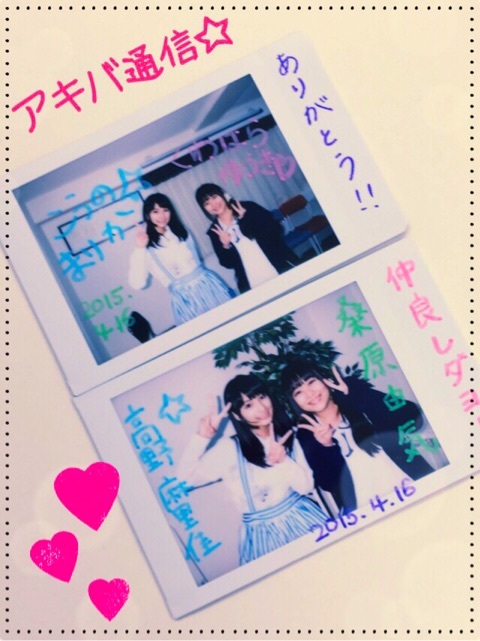 アキバ通信☆
ありがとう!!
こうの
まりか
くわはら
ゆうき♡
2015.
4.16
仲良しダヨ
桑原由気
☆高野麻里佳
2015.4.16